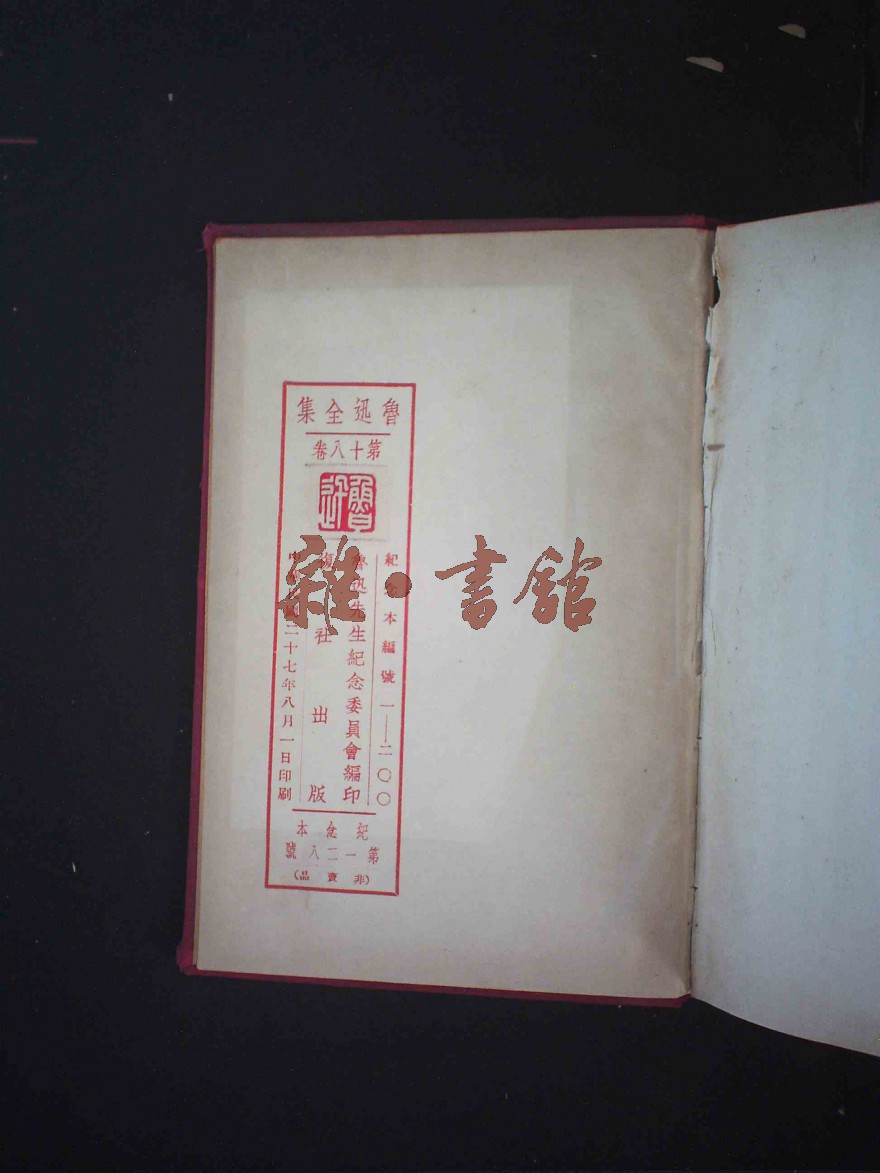 魯迅全集
第十八卷
魯迅
紀念本編號 一——二〇〇
魯迅先生紀念委員會編印
復社出版
中華民國二十七年八月一日印刷
紀念本
第一二八號
(非賣品)
雜·書館